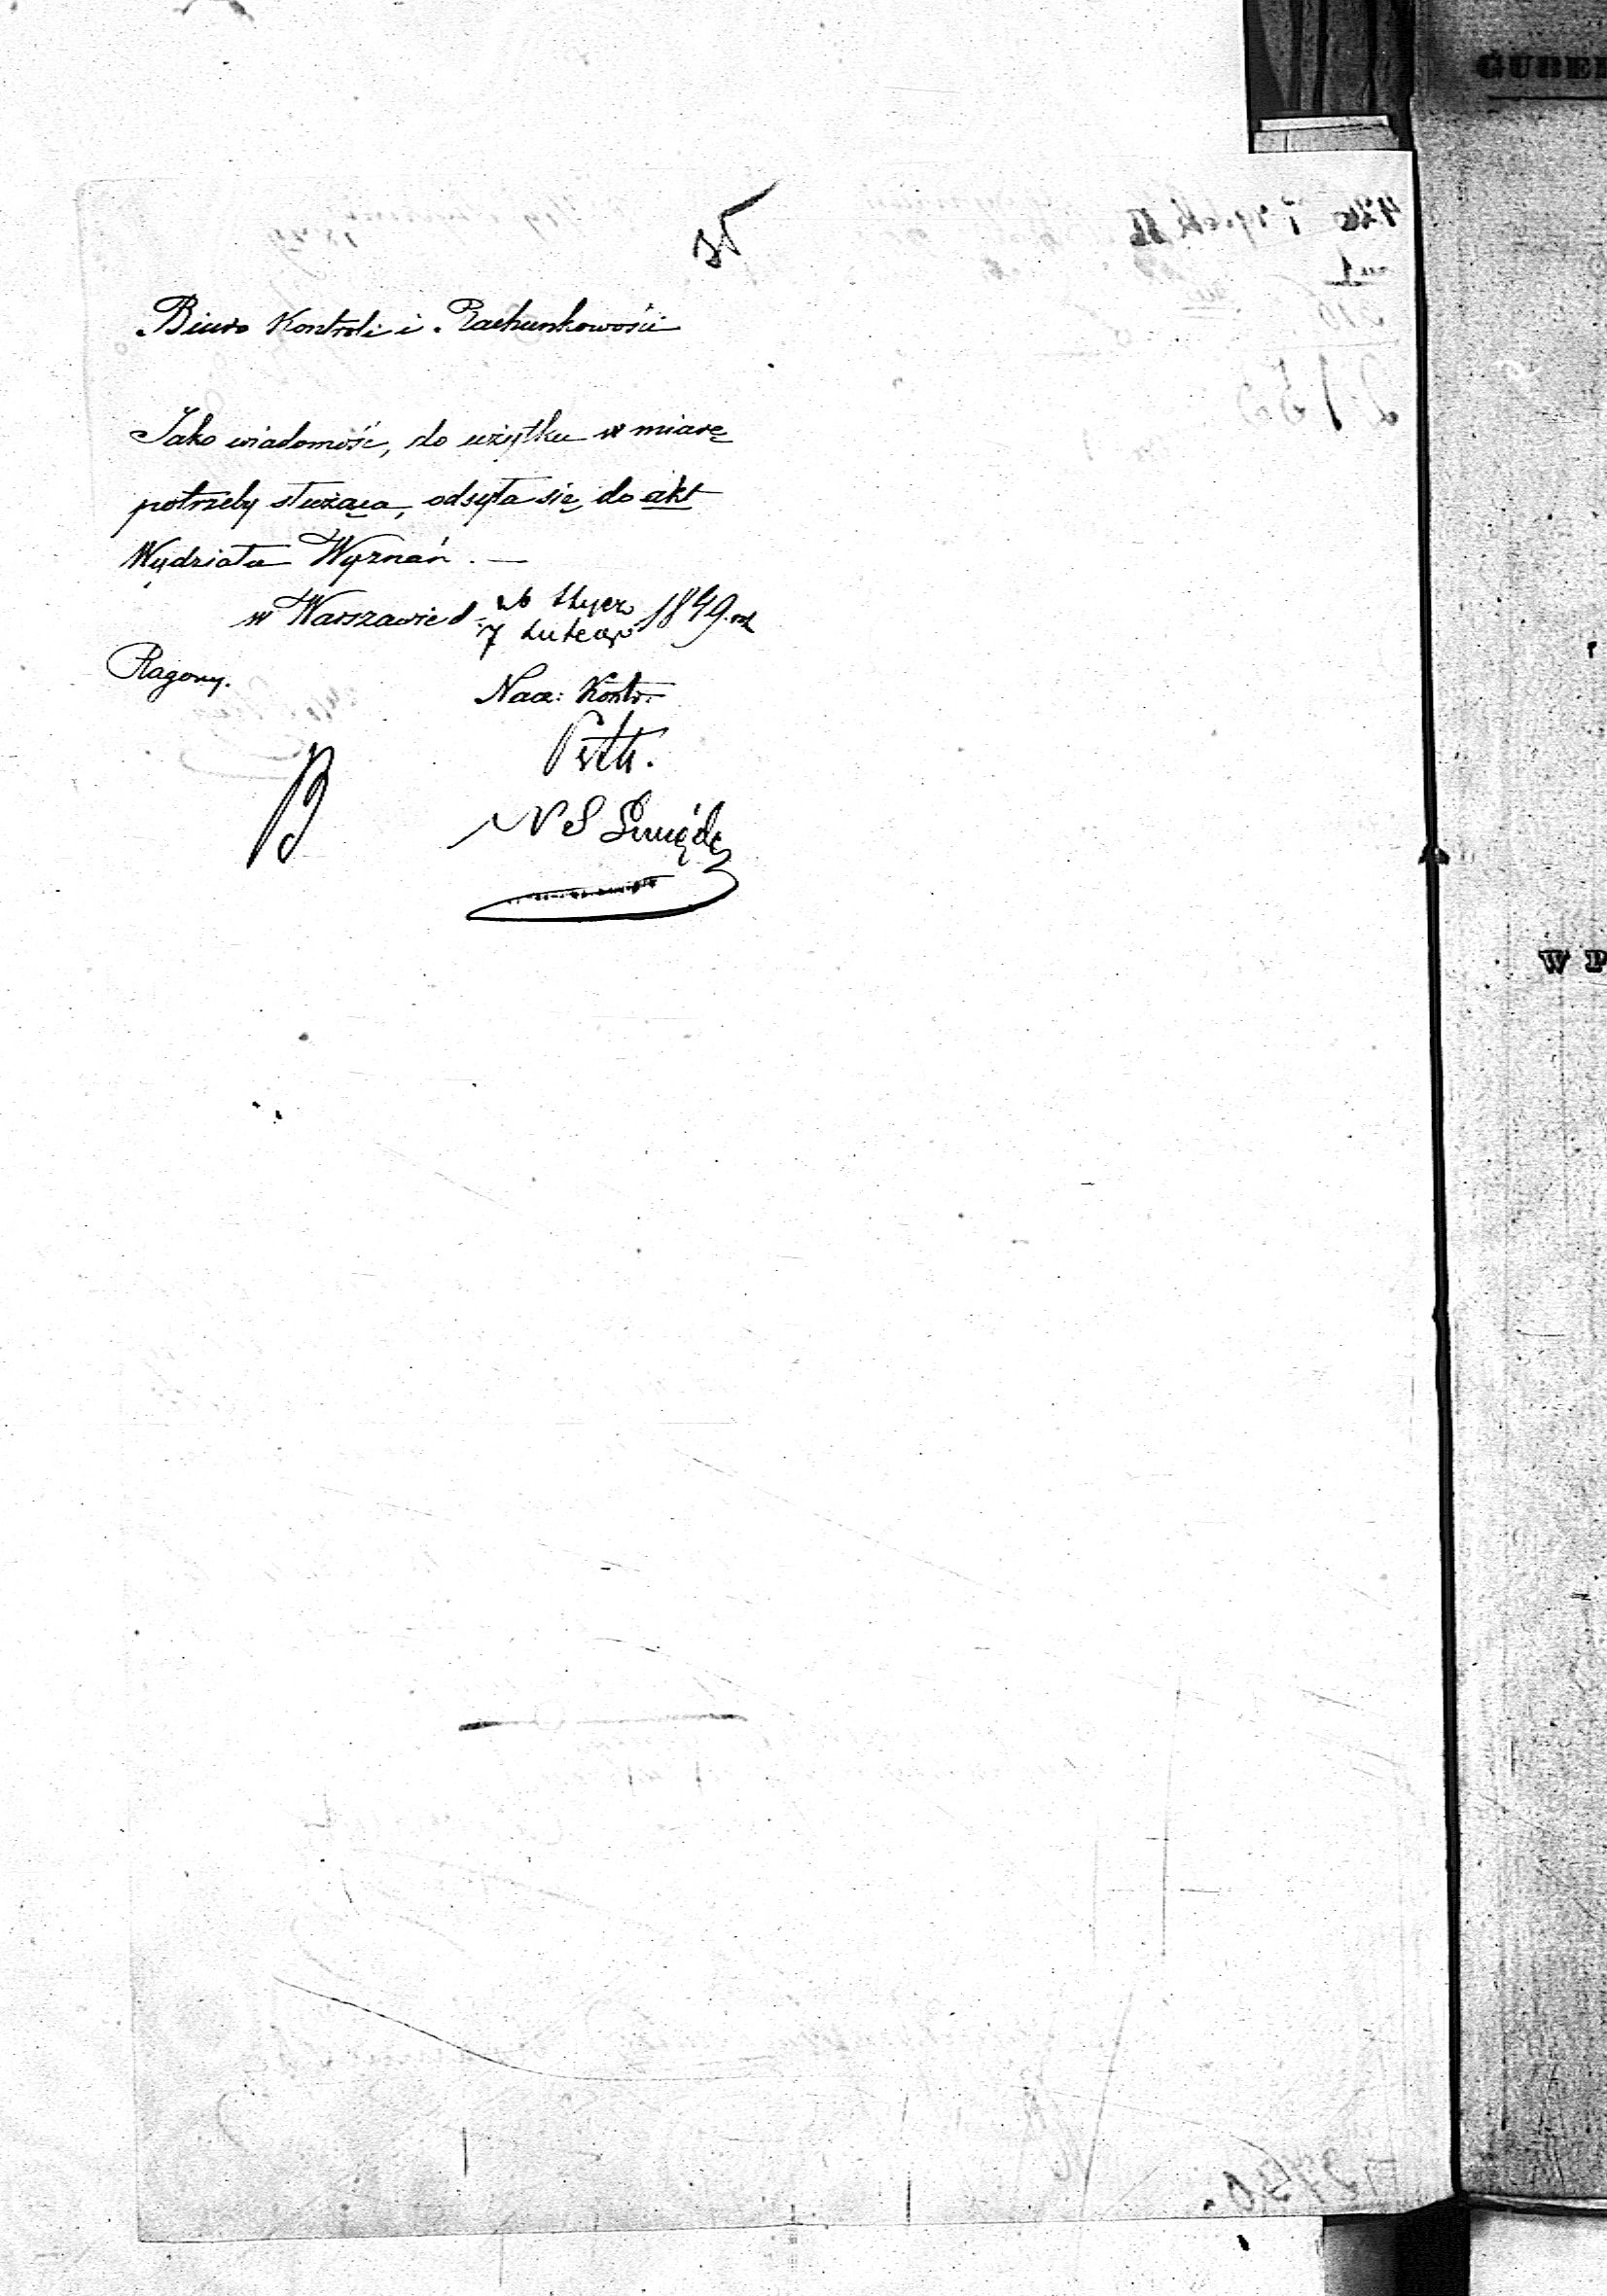 Biuro Kontroli i Rachunkowości
Jako wiadomość, do użytku w miarę
potrzeby służąca, odsyła się do akt
Wydziału Wyznań. —
w Warszawie d. 26 Stycz 1849 rk
7 Lutego
Ragony.
Nacz: Kontr:
N S
GUBER
W P